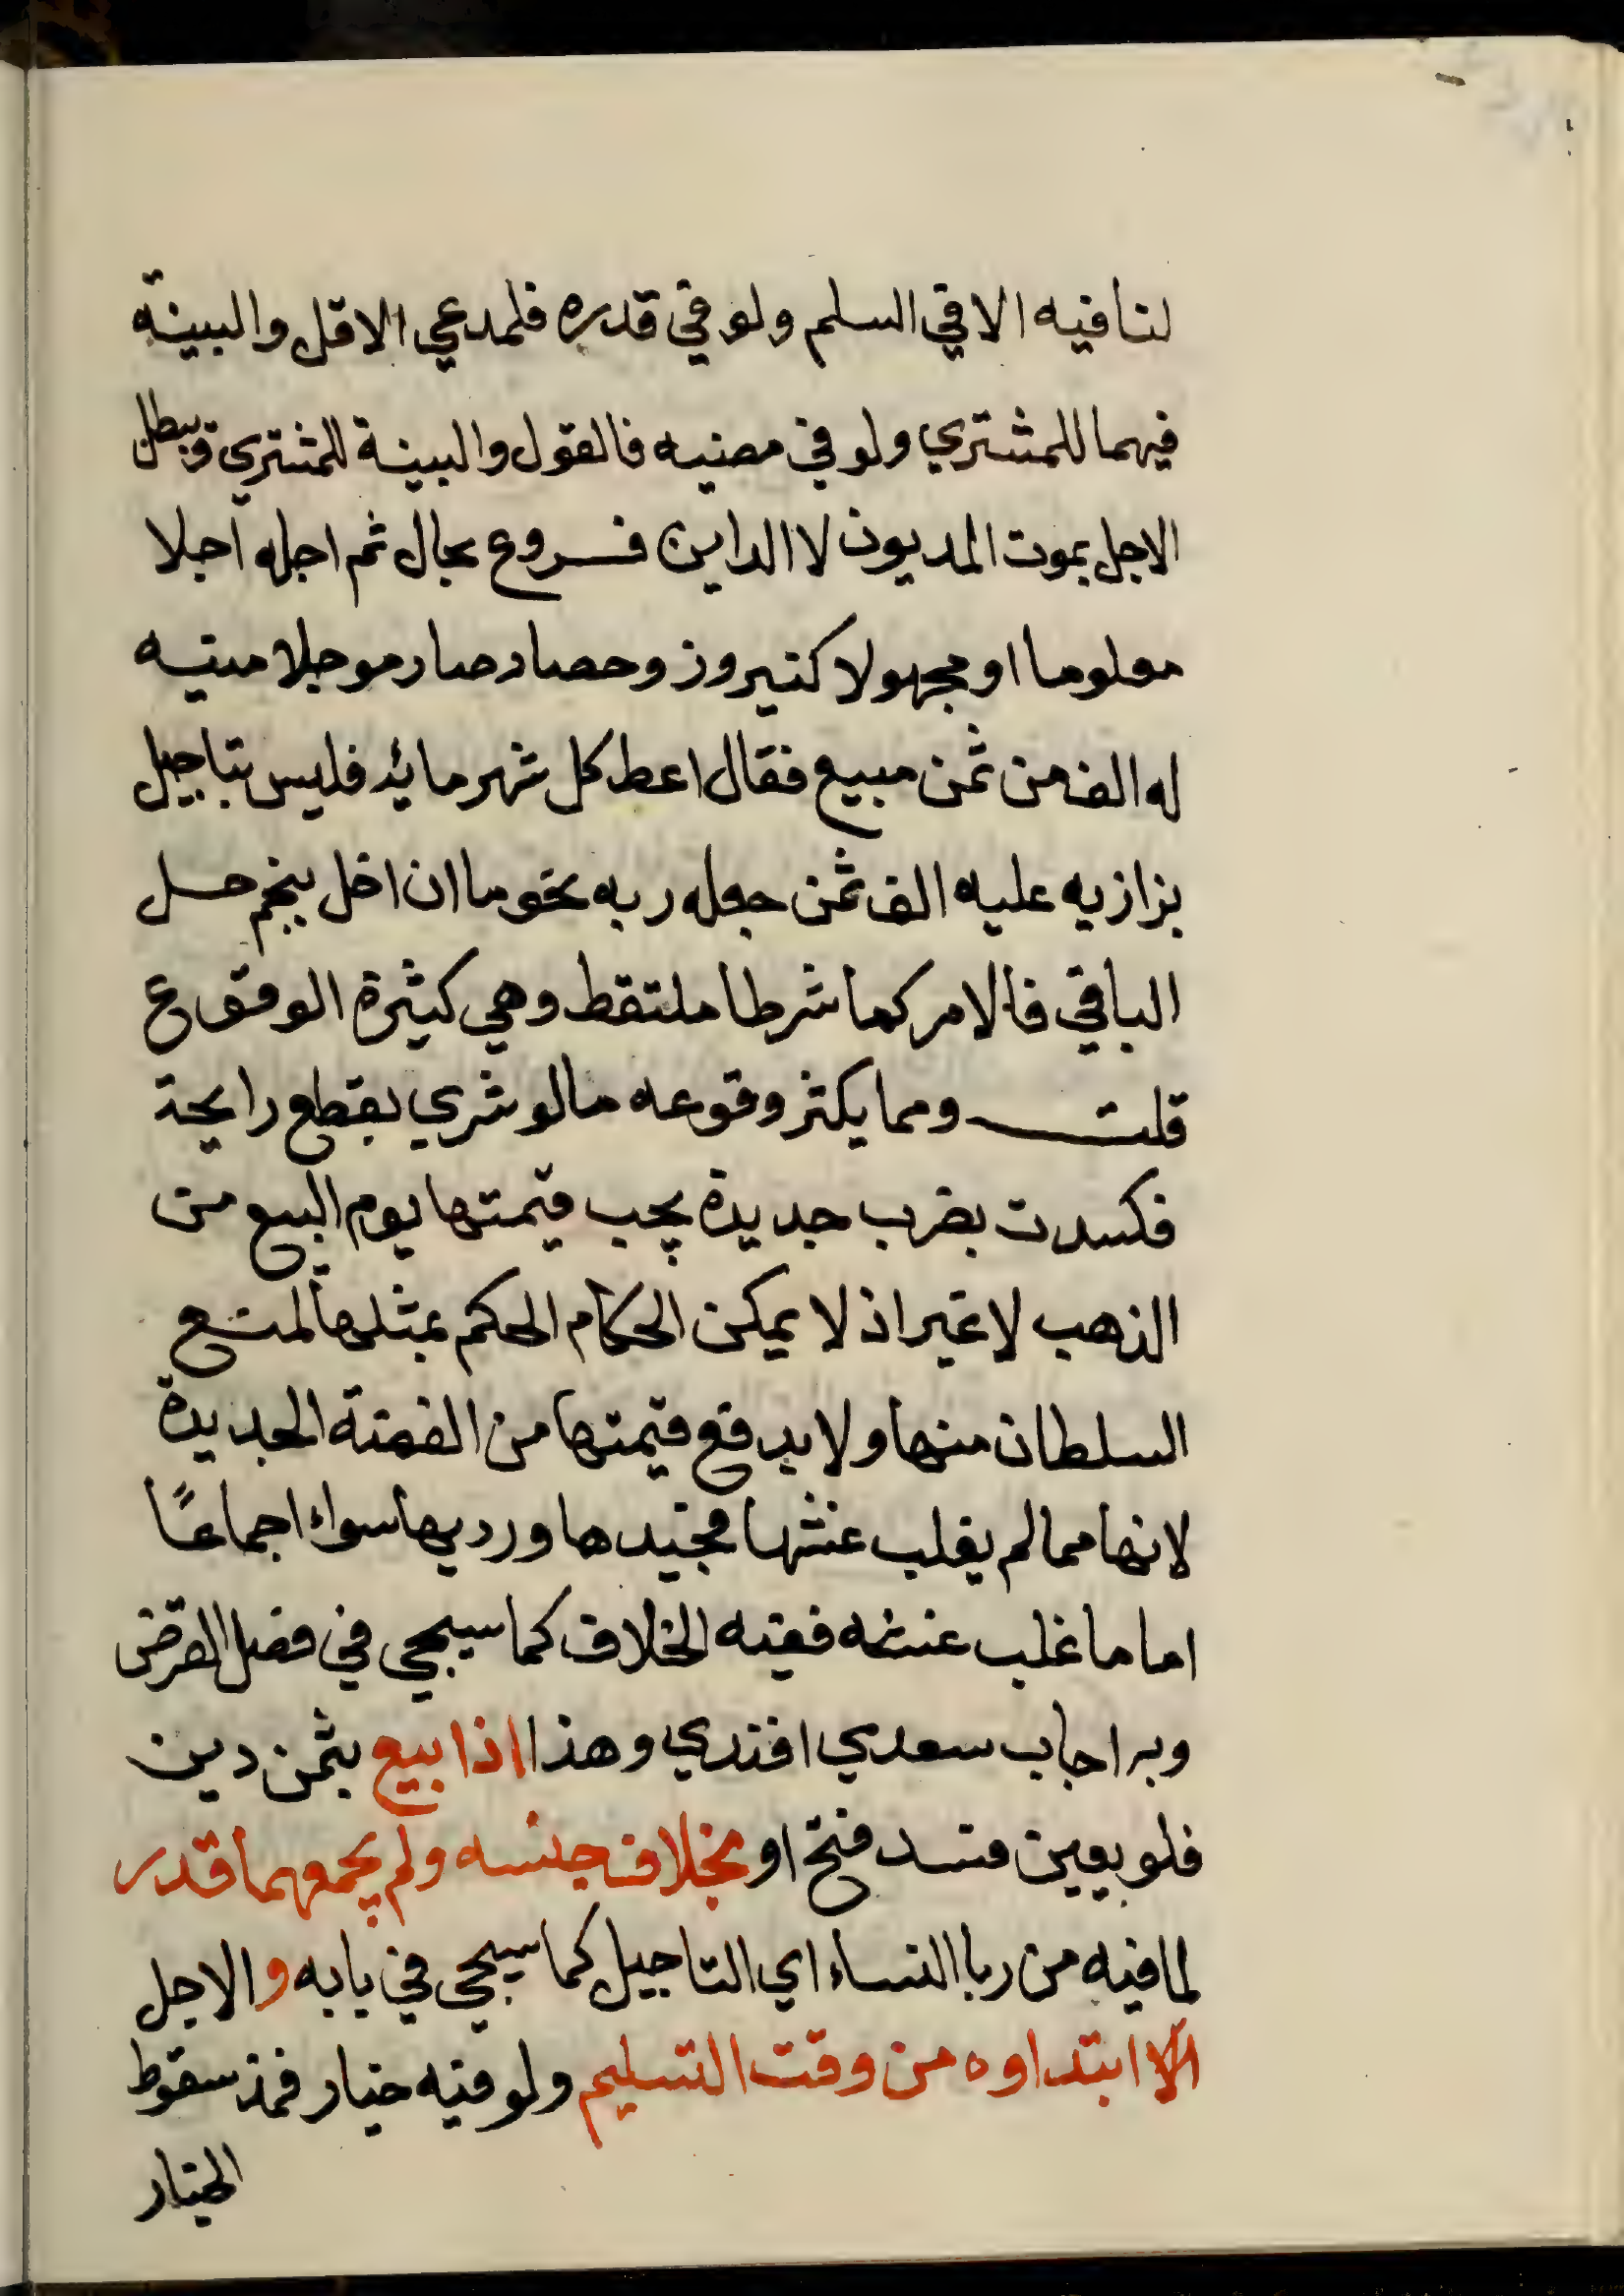 لنافيه الا في السلم ولو في قدره فلمدعي الاقل والبينة
فيهما للمشتري ولو في مضيه فالقول والبينة للمشتري ويبطل
الاجل بموت المديون لا الداين فروع بحال ثم اجله اجلا
معلوما او مجهولا كنيروز وحصاد صار موجلا منيه
له الف من ثمن مبيع فقال اعط كل شهر ماية فليس بتاجيل
بزازيه عليه الف ثمن جعله ربه نجوما ان اخل بنجم حل
الباقي فالامر كما شرطا ملتقط وهي كثيرة الوقوع
قلت ومما يكثر وقوعه مالو شري بقطع رايجة
فكسدت بضرب جديدة يجب قيمتها يوم البيع من
الذهب لا غير اذ لا يمكن الحكام الحكم بمثلها لمنع
السلطان منها ولا يدفع قيمتها من الفضة الجديدة
لانها مما لم يغلب غشها فجيدها ورديها سواء اجماعًا
اما ما غلب غشه ففيه الخلاف كما سيجي في فصل القرض
وبه اجاب سعدي افندي وهذا اذا بيع بثمن دين
فلو بعين فسد فتح او بخلاف جنسه ولم يجمعهما قدر
لما فيه من ربا النساء اي التاجيل كما سيجي في بابه والاجل
الا ابتداوه من وقت التسليم ولو فيه خيار فمذ سقوط
الخيار